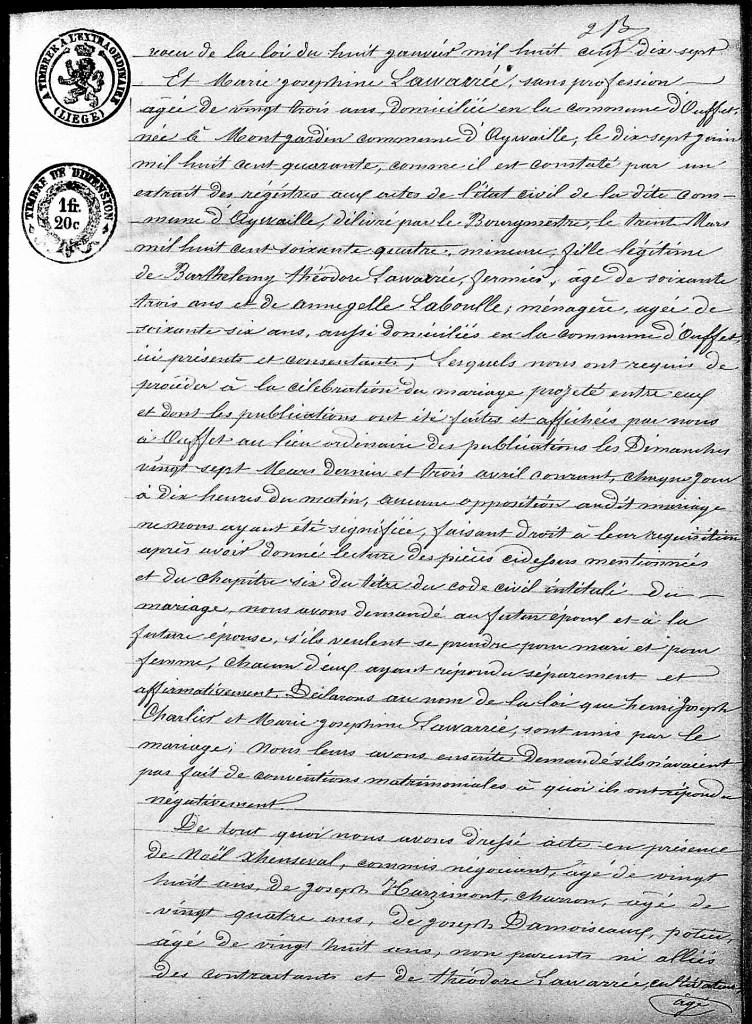 A TIMBRER A L'EXTRAORDINAIRE
(LIEGE)
TIMBRE DE DIMENSION
1 fr.
20 c
voeu de la loi du huit janvier mil huit cent dix sept
Et Marie josephine Lawarrée, sans profession
agée de vingt trois ans, domiciliée en la commune d'Ouffet,
née à Montgardin commune d'Aywaille, le dix sept juin
mil huit cent quarante, comme il est constaté par un
extrait des régistres aux actes de l'état civil de la dite com-
mune d'Aywaille, délivré par le Bourgmestre, le trent Mars
mil huit cent soixante quatre, mineure, fille légitime
de Barthelemy théodore Lawarrée, fermier, âgé de soixante
trois ans et de annegelle Laboulle, ménagère, agée de
soixante six ans, aussi domiciliés en la commune d'Ouffet,
ici présents et consentants; Lesquels nous ont requis de
procéder à la célébration du mariage projeté entre eux
et dont les publications ont été faites et affichées par nous
à Ouffet au lieu ordinaire des publications les Dimanches
vingt sept Mars dernier et trois avril courant, chaque jour
à dix heures du matin, aucune opposition audit mariage
ne nous ayant été signifiée, faisant droit à leur requisition
après avoir donné lecture des pièces cidessus mentionnées
et du chapitre six du titre du code civil intitulé du
mariage, nous avons demandé au futur époux et à la
future épouse, s'ils veulent se prendre pour mari et pour
femme, chacun d'eux ayant répondu séparement et
affirmativement, Déclarons au nom de la loi que henri Joseph
Charlier et Marie Josephine Lawarrée, sont unis par le
mariage; Nous leurs avons ensuite Demandé s'ils n'avaient
pas fait de conventions matrimoniales à quoi ils ont répondu
négativement.
De tout quoi nous avons dressé acte en présence
de Noël Xhenseval, commis négociant, âgé de vingt
huit ans, de joseph Harzimont, charron, âgé de
vingt quatre ans, de joseph Damoiseaux, potier,
âgé de vingt huit ans, non parents ni alliés
des contractants et de théodore Lawarrée, cultivateur,
âgé